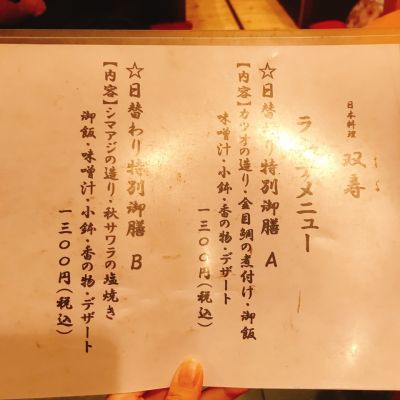 日本料理 双寿
ランチメニュー
☆日替わり特別御膳 A
【内容】カツオの造り・金目鯛の煮付け・御飯
味噌汁・小鉢・香の物・デザート
一三〇〇円(税込)
☆日替わり特別御膳 B
【内容】シマアジの造り・秋サワラの塩焼き
御飯・味噌汁・小鉢・香の物・デザート
一三〇〇円(税込)